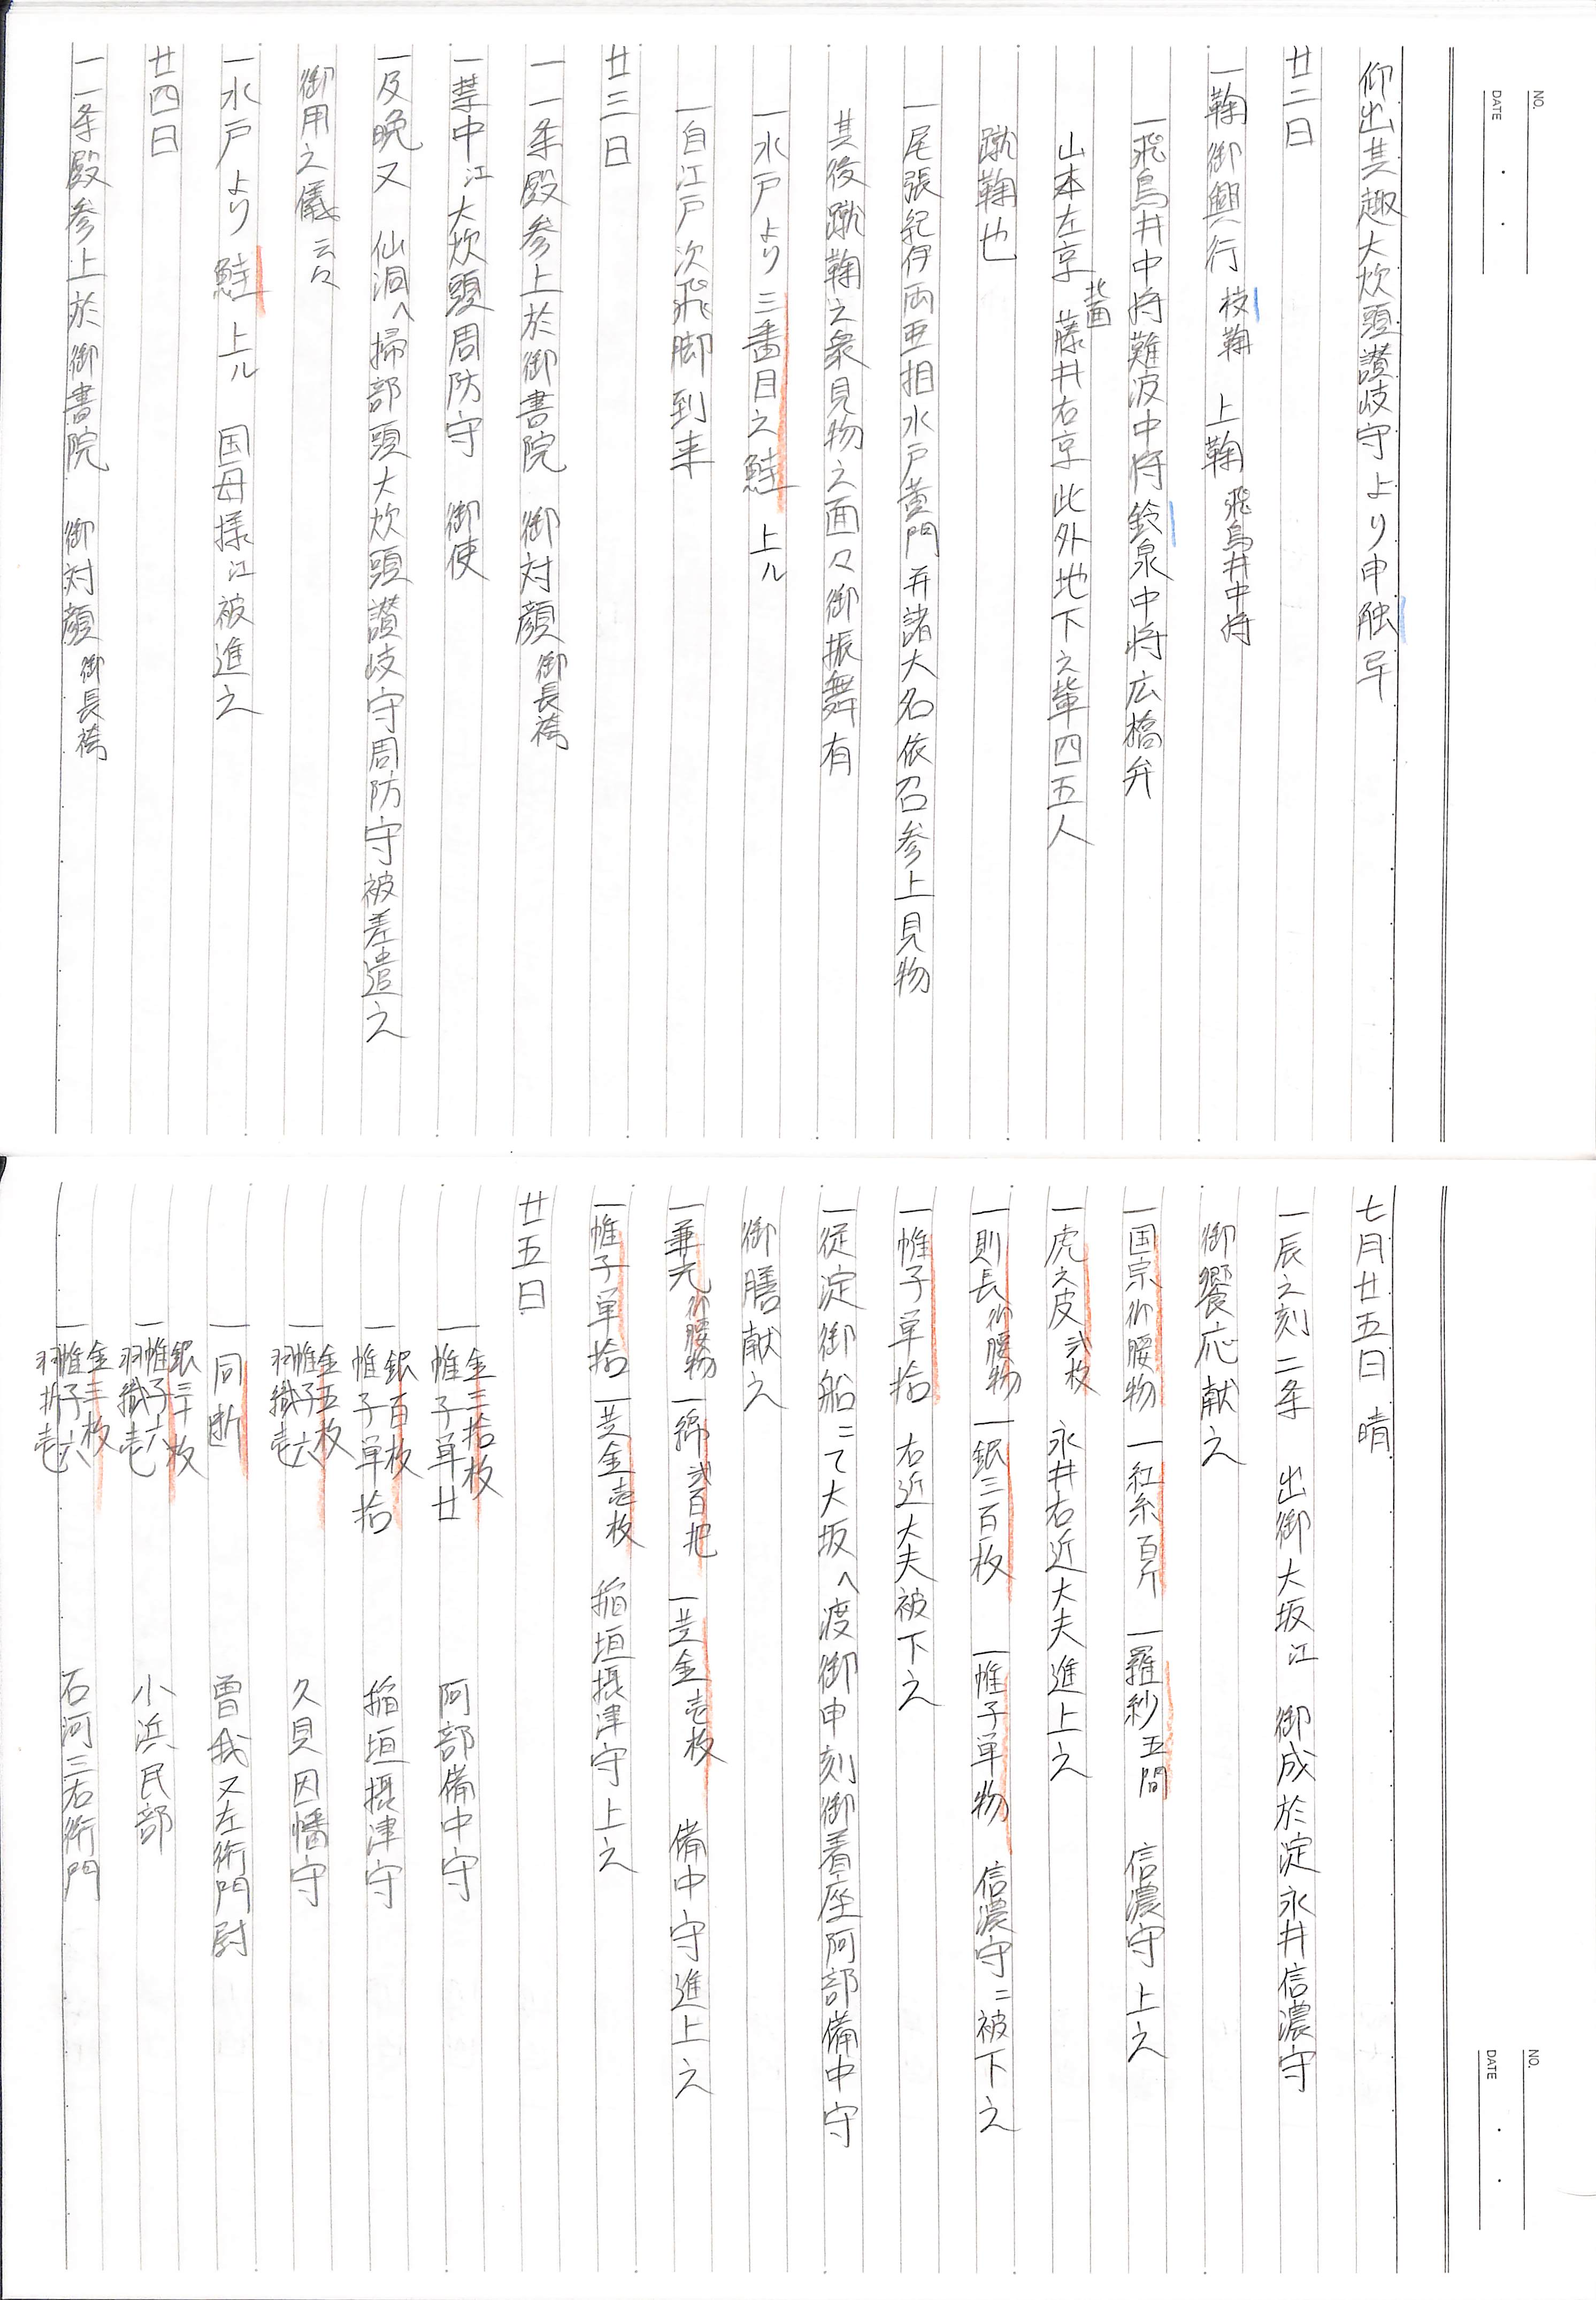 NO.
DATE
仰出其趣大炊頭讃岐守より申触早
廿二日
一鞠御興行 枝鞠 上鞠 飛鳥井中将
一飛鳥井中将難波中将鈴泉中将広橋弁
山本左京 北面 藤井右京此外地下之輩四五人
蹴鞠也
一尾張紀伊両亜相水戸黄門并諸大名依召参上見物
其後蹴鞠之衆見物之面々御振舞有
一水戸より三番目之鮭 上ル
一自江戸次飛脚到来
廿三日
一一条殿参上於御書院 御対顔 御長袴
一禁中江大炊頭周防守 御使
一及晩又 仙洞へ掃部頭大炊頭讃岐守周防守被差遣之
御用之儀云々
一水戸より鮭上ル 国母様江被進之
廿四日
一一条殿参上於御書院 御対顔 御長袴
NO.
DATE
七月廿五日 晴
一辰之刻二条 出御大坂江 御成於淀永井信濃守
御饗応献之
一国宗御腰物 一紅糸百斤 一羅紗五間 信濃守上之
一虎之皮弐枚 永井右近大夫進上之
一則長御腰物 一銀三百枚 一帷子単物 信濃守ニ被下之
一帷子単拾 右近大夫被下之
一従淀御船ニて大坂へ渡御申刻御着座阿部備中守
御膳献之
一兼光御腰物 一綿弐百把 一芝金壱枚 備中守進上之
一帷子単拾 一芝金壱枚 稲垣摂津守上之
廿五日
一金三拾枚 帷子単廿 阿部備中守
一銀百枚 帷子単拾 稲垣摂津守
一金五枚 帷子六 羽織壱 久貝因幡守
一同断 曽我又左衛門尉
一銀三十枚 帷子六 羽織壱 小浜民部
一金三枚 帷子六 羽折壱 石河三右衛門